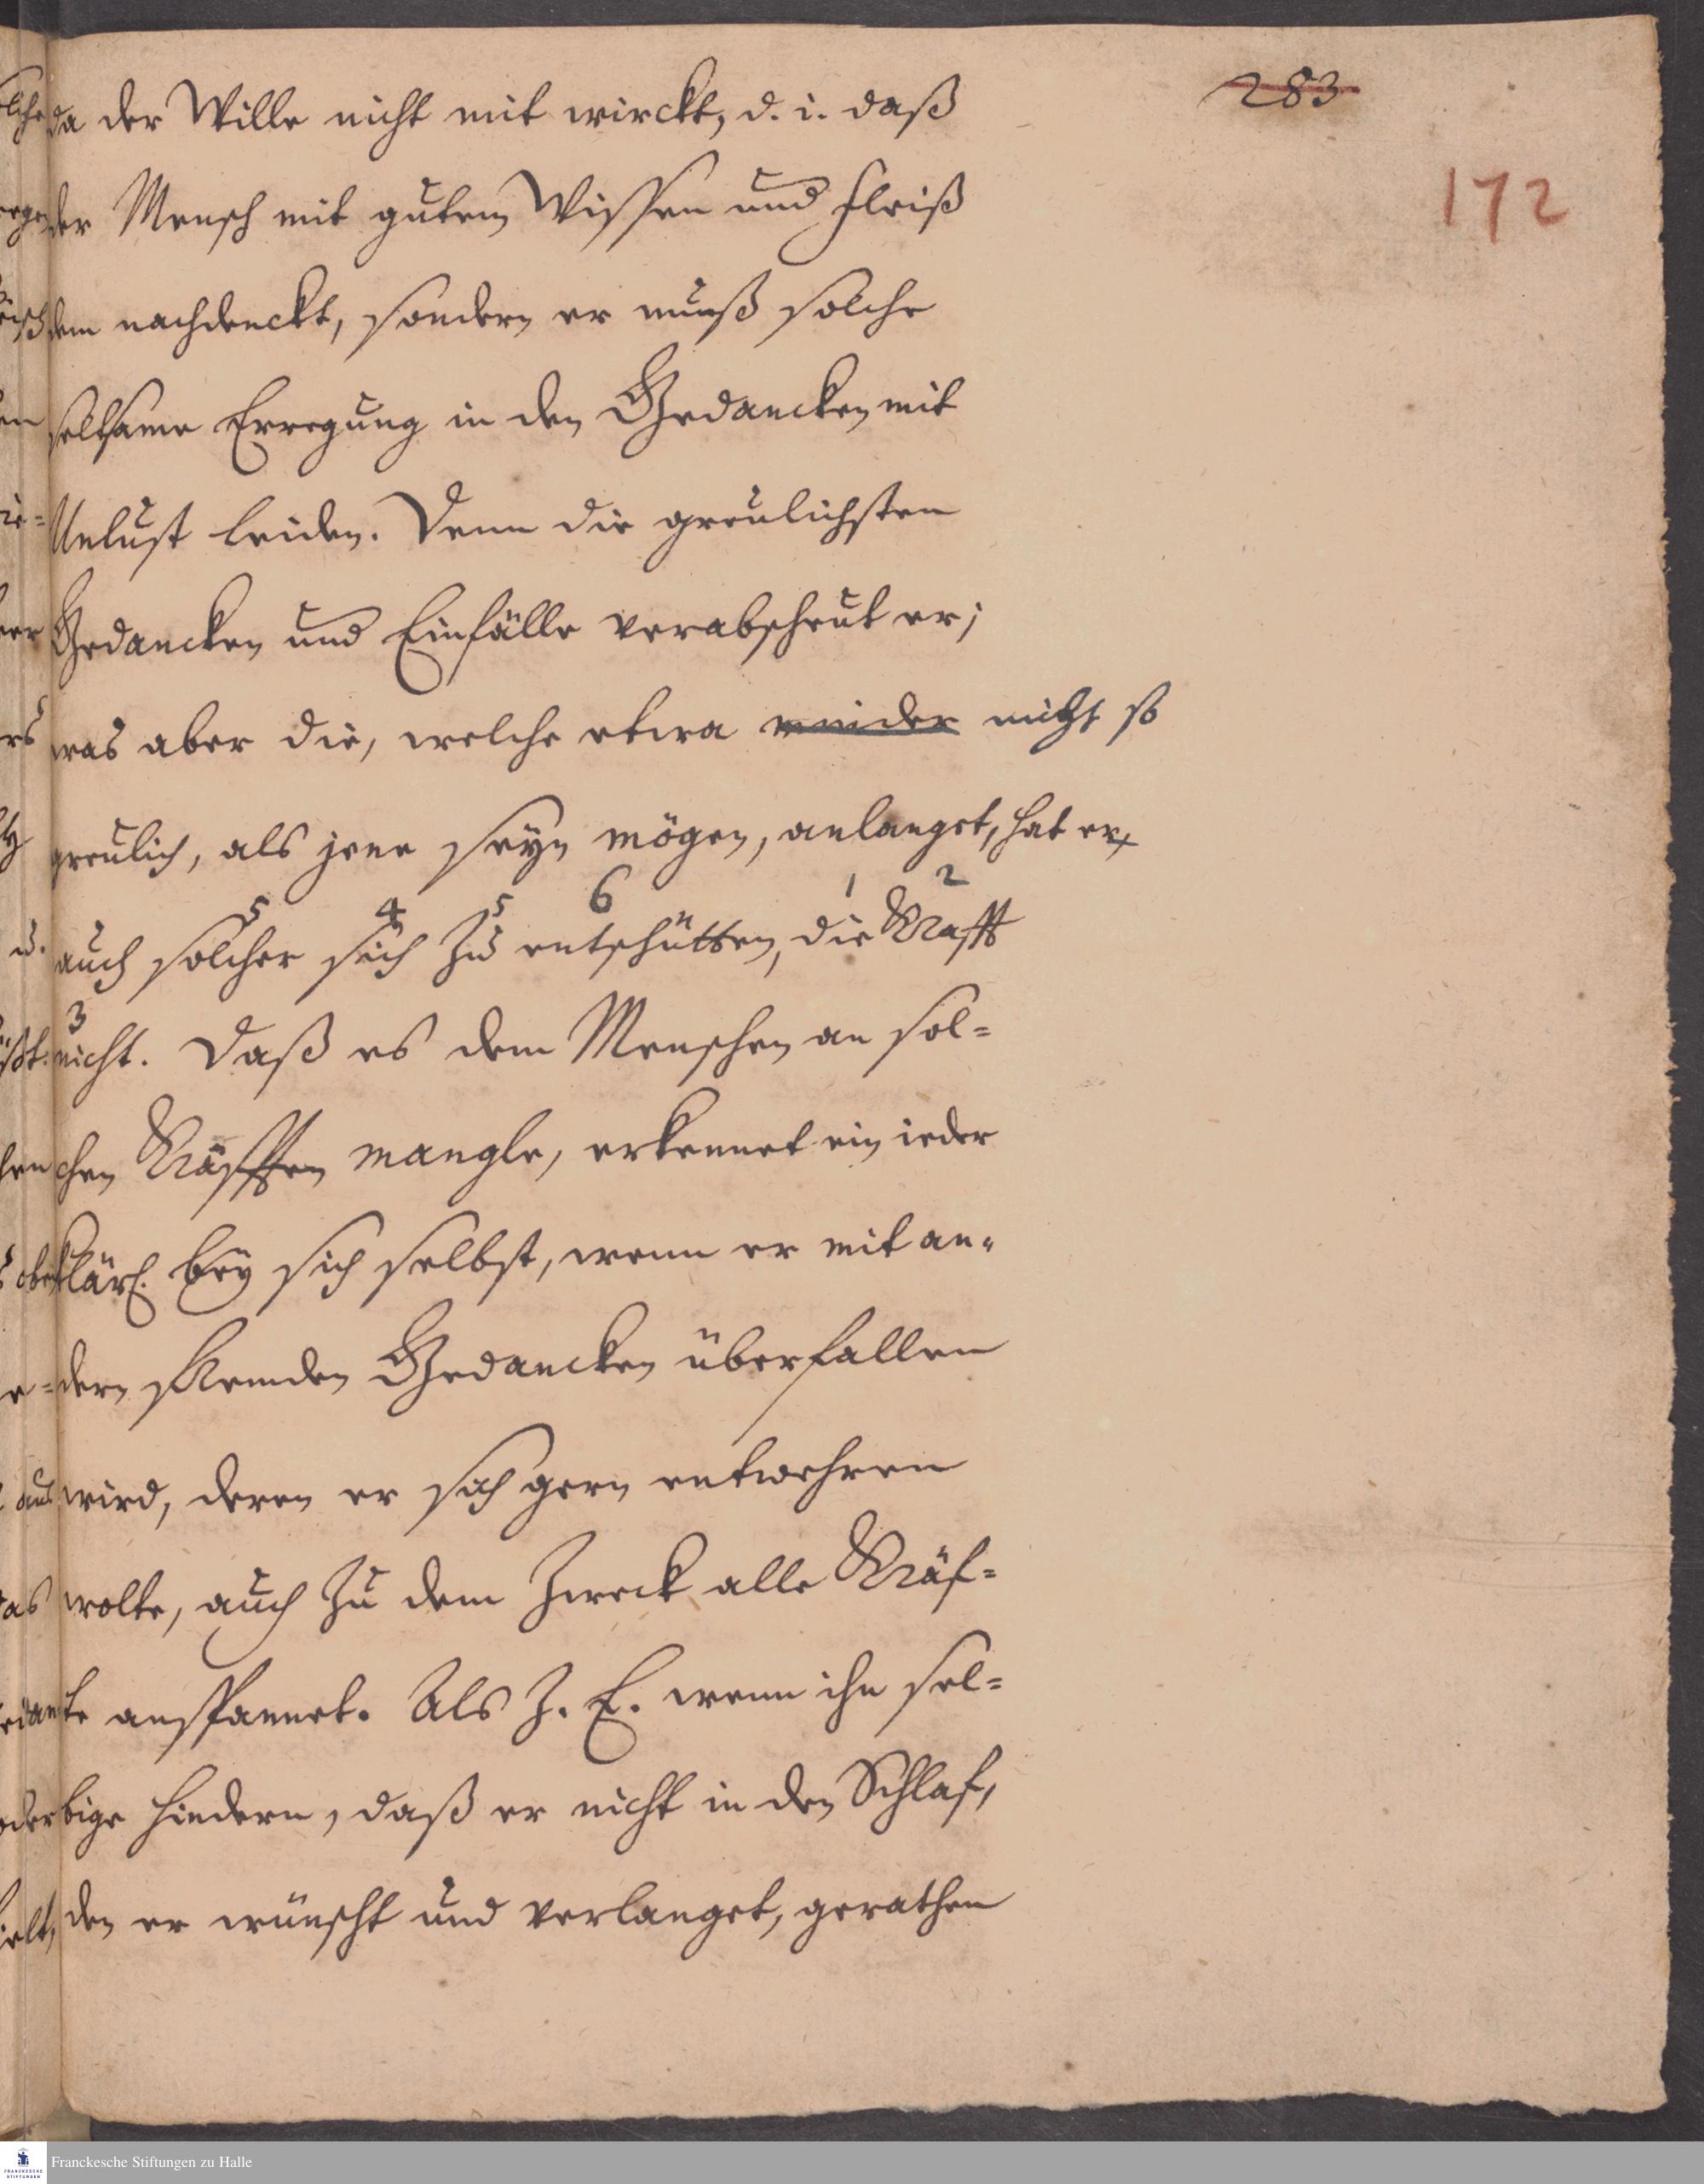 283
172
da der Wille nicht mit wirckt, d. i. daß
der Mensch mit gutem Wissen und Fleiß
dem nachdenckt, sondern er muß solche
seltsame Erregung in den Gedancken mit
Unlust leiden. Denn die greulichsten
Gedancken und Einfälle verabscheut er;
was aber die, welche etwa minder nicht so
greulich, als jene seyn mögen, anlanget, hat er
5 4 5 6 1 2
auch solcher sich zu entschütten, die Krafft
3
nicht. Daß es dem Menschen an sol=
chen Kräfften mangle, erkennet ein ieder
klärl. bey sich selbst, wenn er mit an=
dern fremden Gedancken überfallen
wird, deren er sich gern entwehren
wolte, auch zu dem Zweck alle Kräf=
te anspannet. Als z. E. wenn ihn sel=
bige hindern, daß er nicht in den Schlaf,
den er wünscht und verlanget, gerathen
Franckesche Stiftungen zu Halle